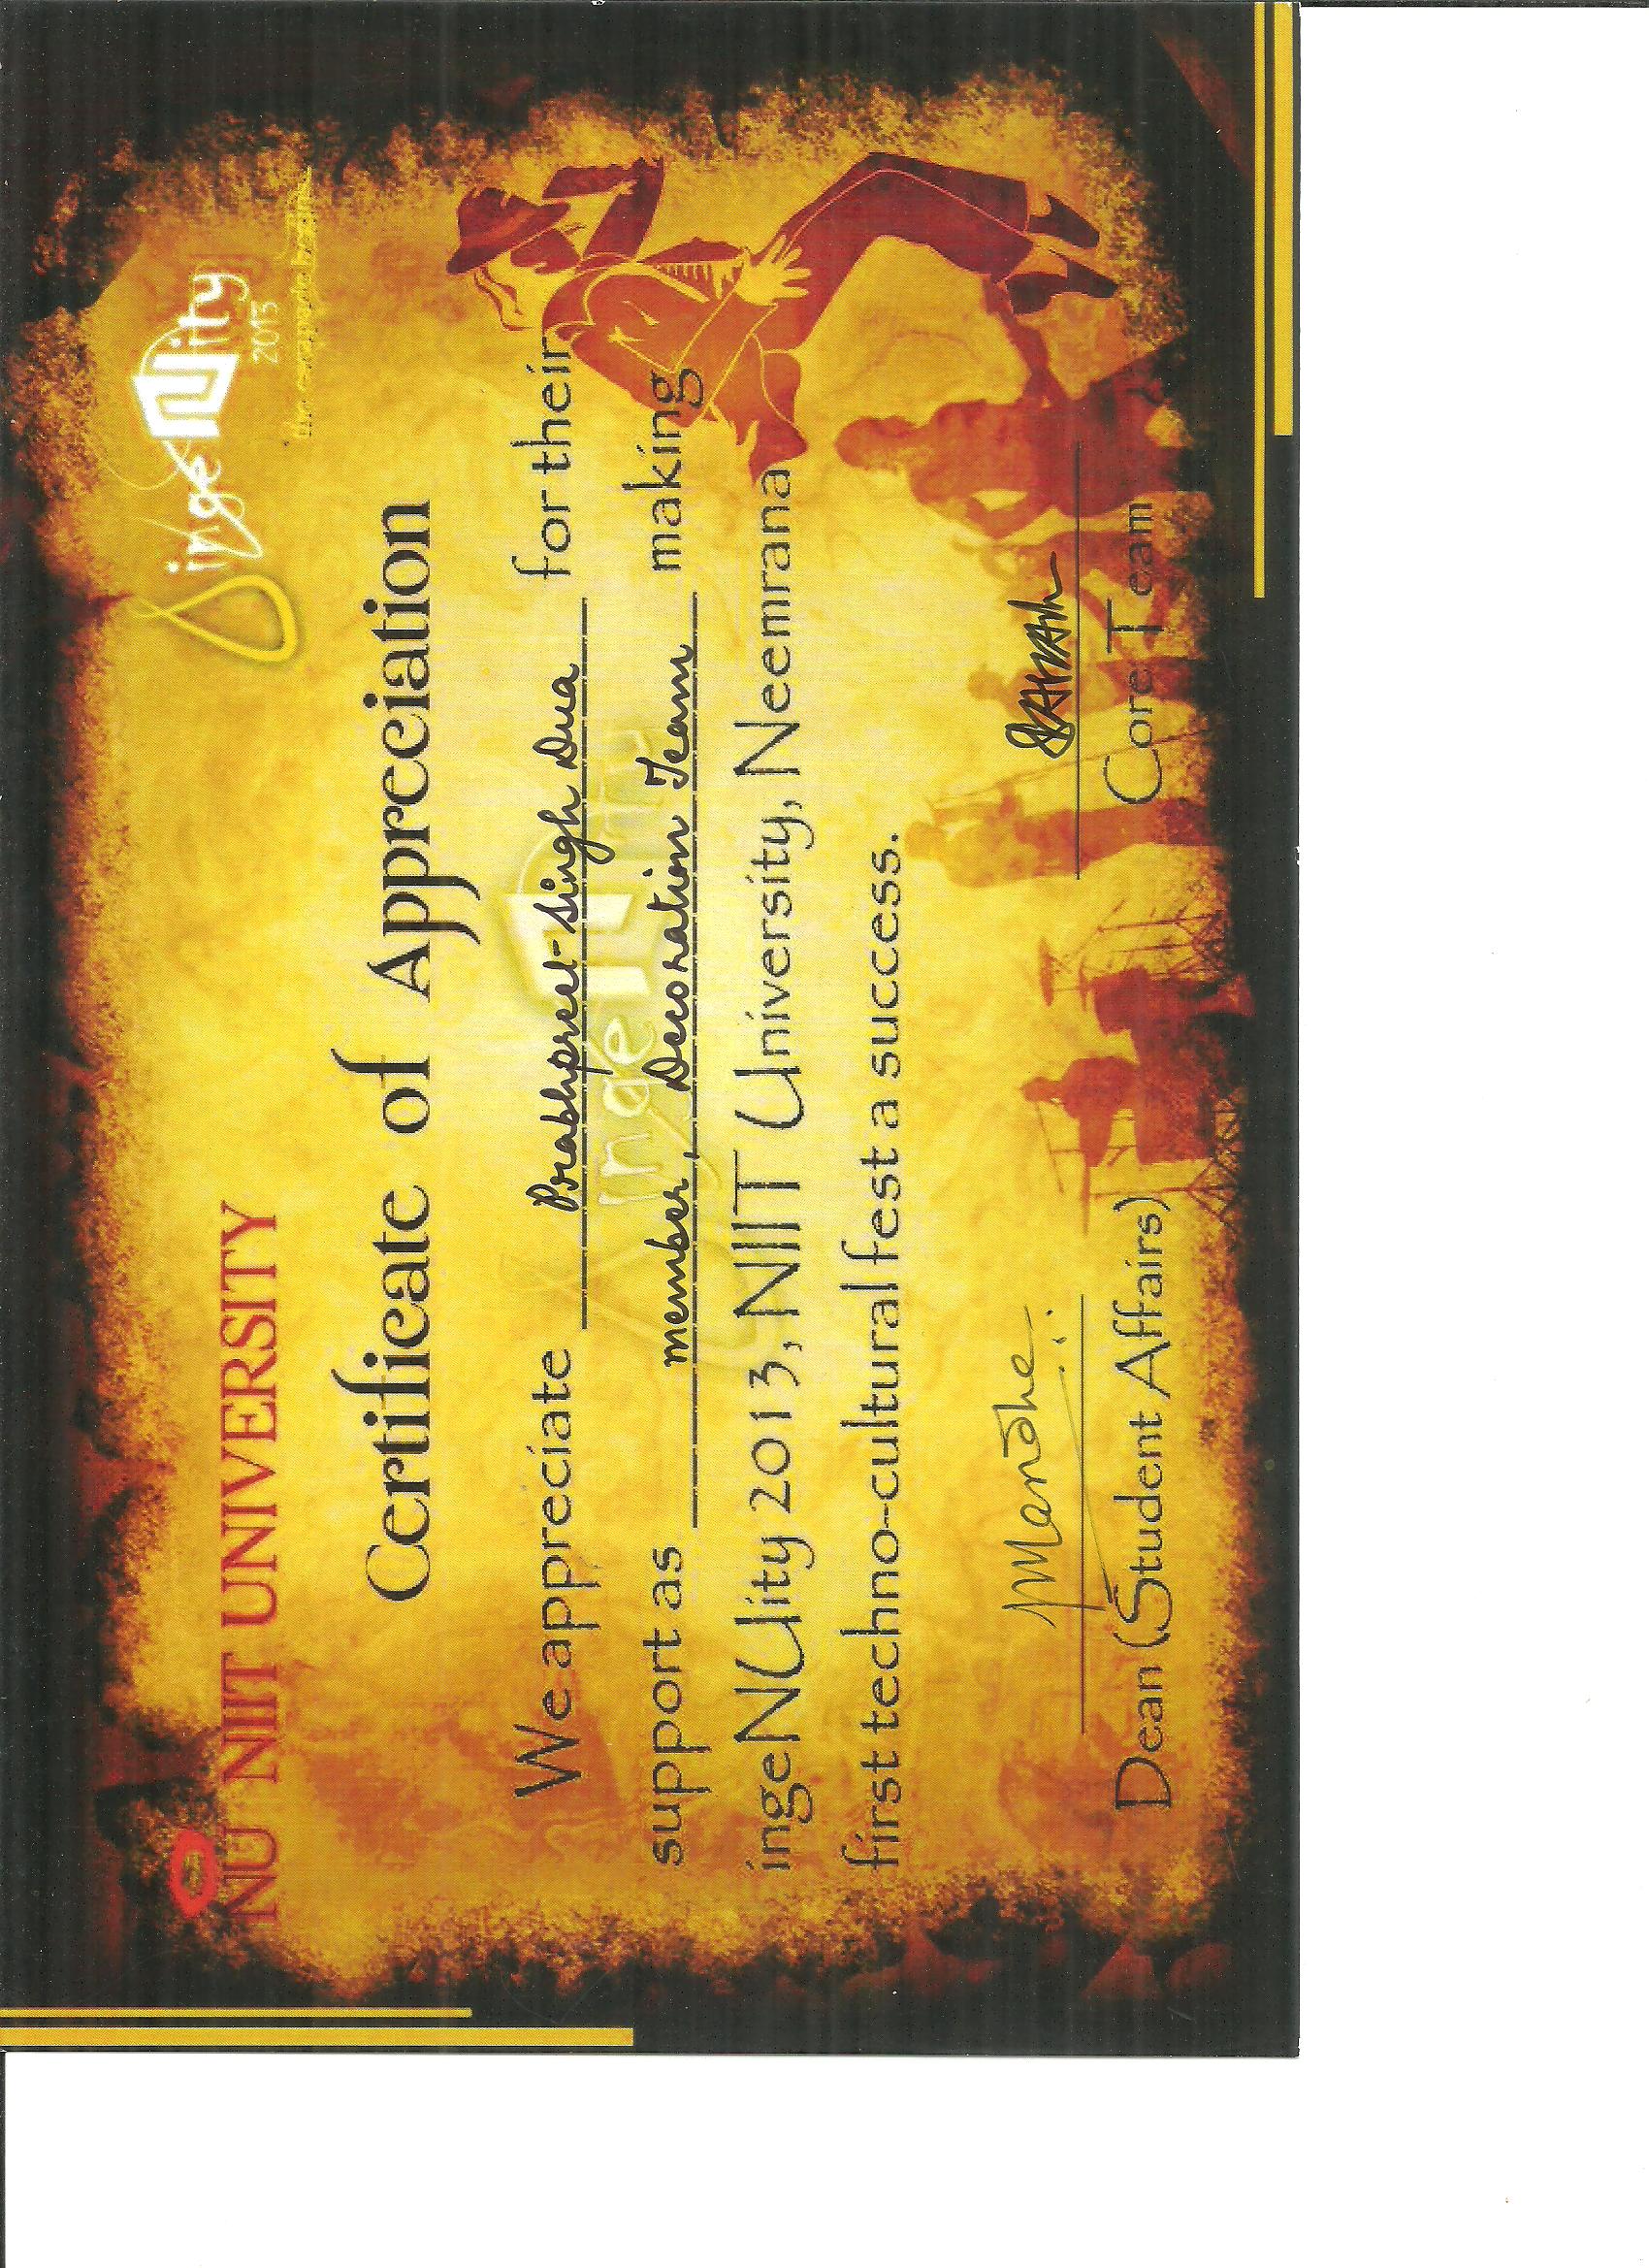 NU NIIT UNIVERSITY
ingeNUity
2013
the escapade begins...
Certificate of Appreciation
We appreciate Prabhpreet Singh Dua for their
support as member, Decoration Team making
ingeNUity 2013, NIIT University, Neemrana
first techno-cultural fest a success.
Dean (Student Affairs)
Core Team